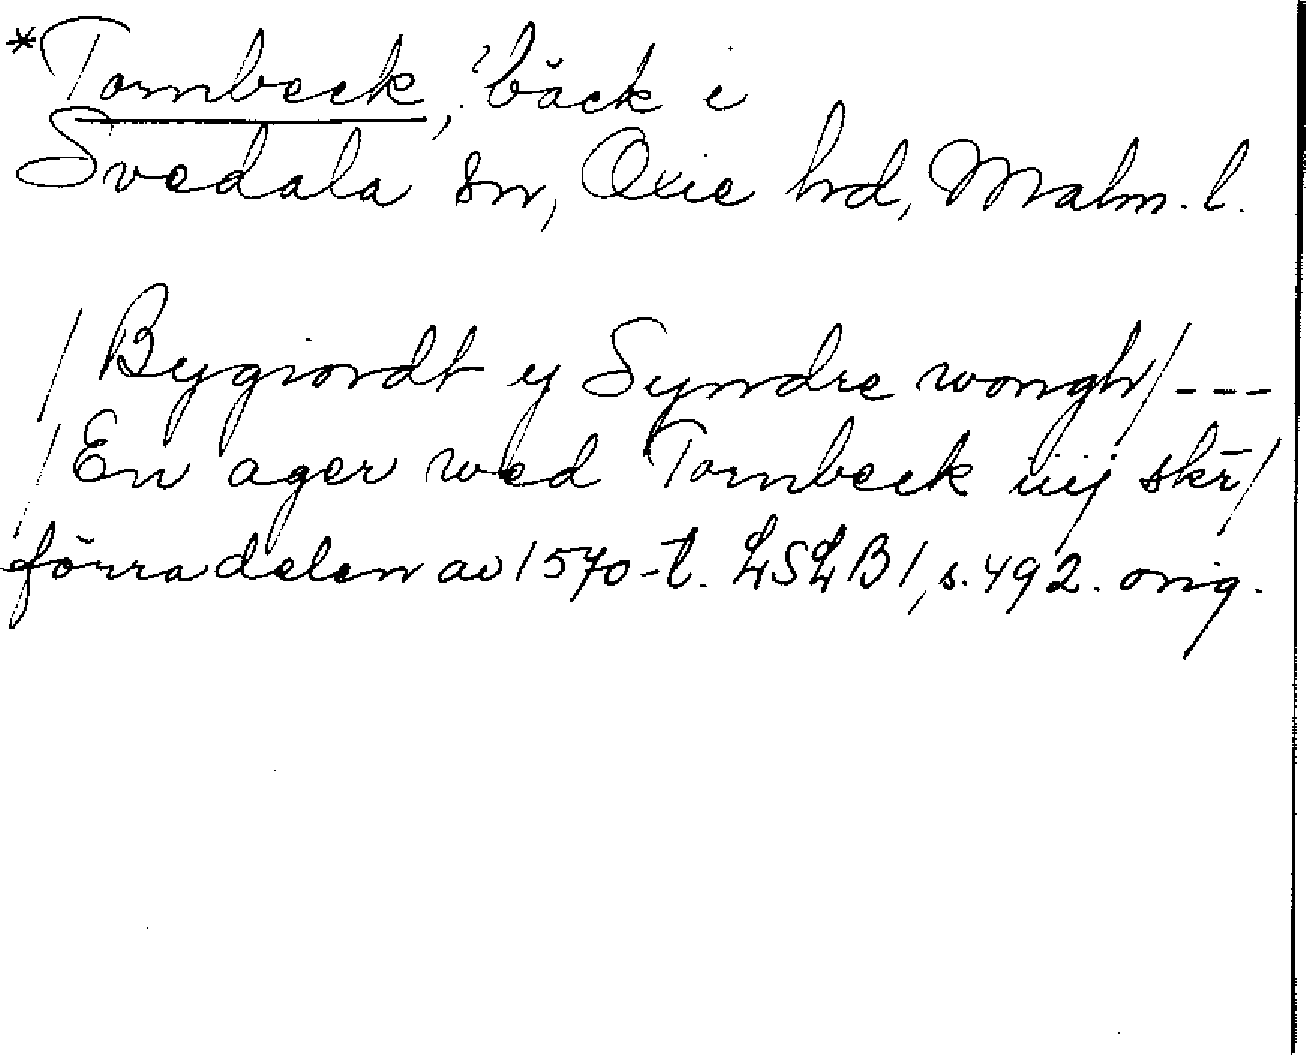 *Tornbeck, ?bäck i
Svedala sn, Oxie hd, Malm. l.
/Bygiordt y Syndre wongh/ ---
/En ager wed Tornbeck iiij skr/
förra delen av 1570-t. LSLB 1, s. 492. orig.